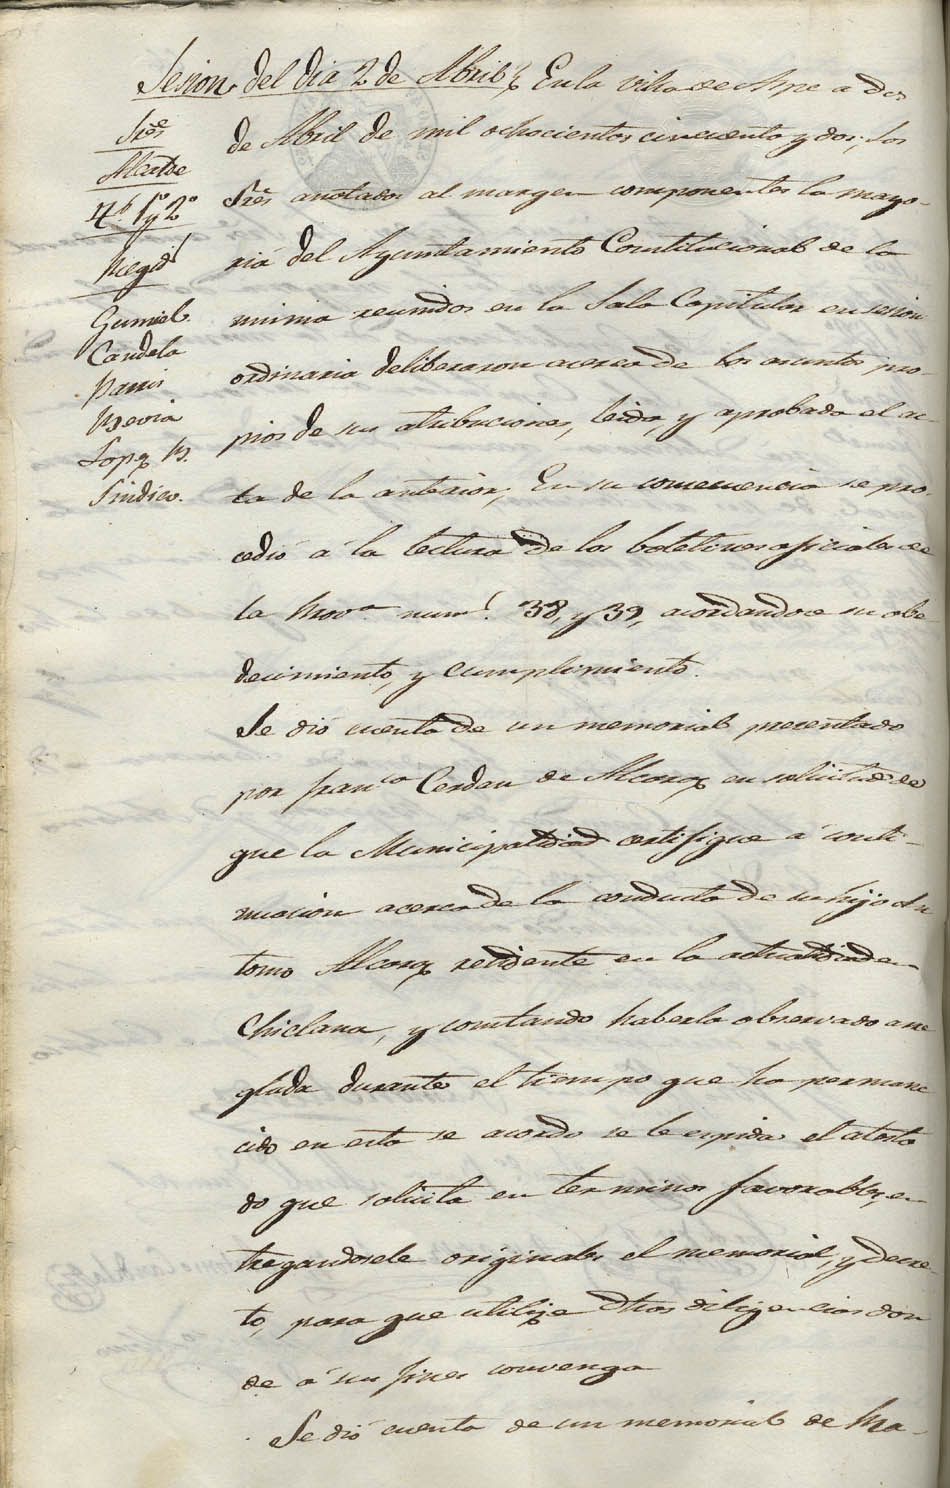 Sesion del dia 2 de Abril, En la villa de Aspe a dos
Sres
Alcalde
Ts. 1º y 2º
Regid.
Gumiel
Candela
Pavia
Hevia
Lopez
Sindico.
de Abril de mil ochocientos cincuenta y dos: los
Sres. anotados al margen componentes la mayo-
ria del Ayuntamiento Constitucional de la
misma reunidos en la Sala Capitular en sesion
ordinaria deliberaron acerca de los asuntos pro-
pios de su atribuciones, leida, y aprobada el ac-
ta de la anterior, En su consecuencia se pro-
cedió á la lectura de los boletines oficiales de
la Prova. num. 38, y 39, acordandose su obe-
decimiento, y cumplimiento.
Se dió cuenta de un memorial presentado
por Franco. Cerdan de Alcaraz en solicitud de
que la Municipalidad certifique á conti-
nuacion acerca de la conducta de su hijo An
tonio Alcaraz residente en la actualidad en
Chiclana, y constando haberla observado arre
glada durante el tiempo que ha permane
cido en esta se acordo se le espida el atesta
do que solicita en terminos favorables, en-
tregandosele originales el memorial, y decre-
to, para que utilize dhas diligencias don
de á sus fines convenga
Se dió cuenta de un memorial de Ma-